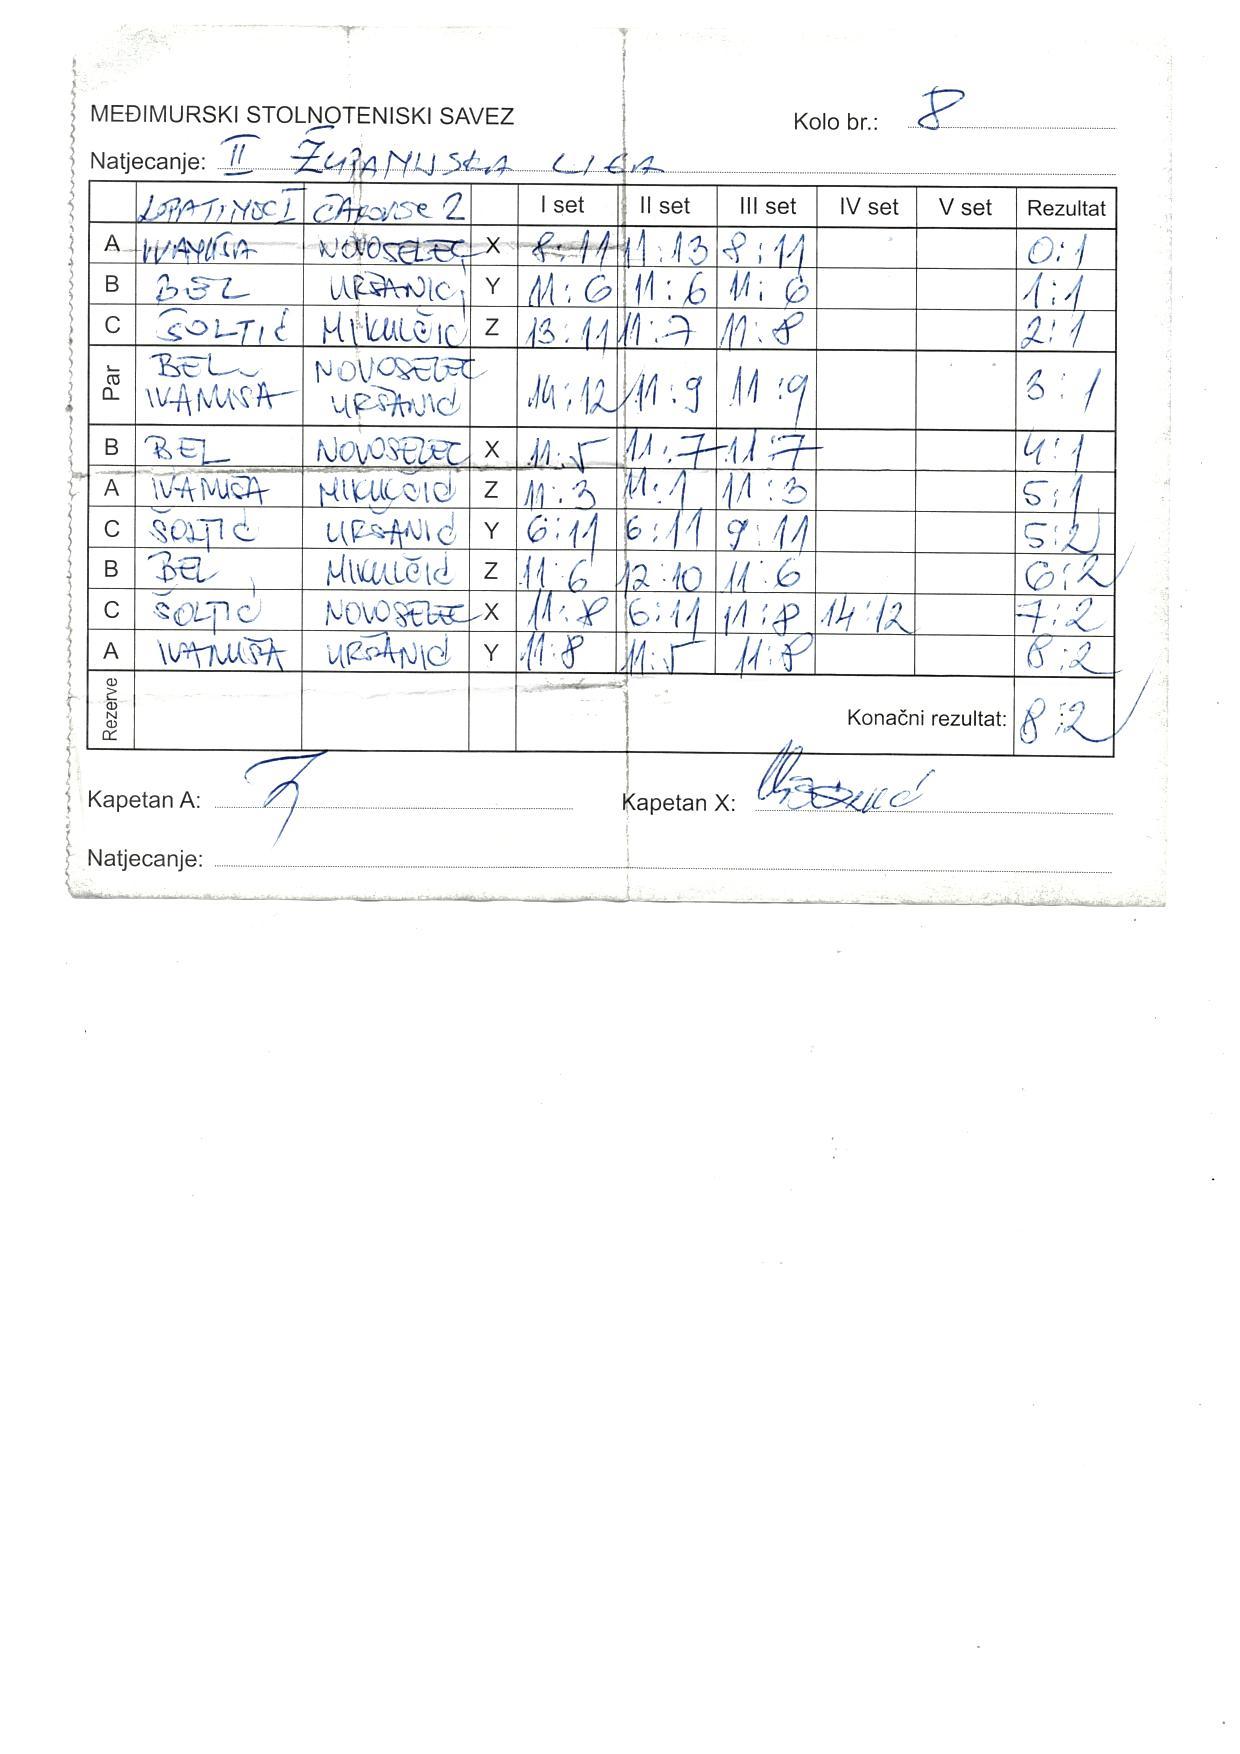 MEĐIMURSKI STOLNOTENISKI SAVEZ
Kolo br.: 8
Natjecanje: II ŽUPANIJSKA LIGA
I set II set III set IV set V set Rezultat
A IVANUŠA NOVOSELEC X 8:11 11:13 8:11 0:1
B BEL URBANIĆ Y 11:6 11:6 11:6 1:1
C ŠOLTIĆ MIKULČIĆ Z 13:11 11:7 11:8 2:1
Par BEL NOVOSELEC 14:12 11:9 11:9 3:1
IVANUŠA URBANIĆ
B BEL NOVOSELEC X 11:5 11:7 11:7 4:1
A IVANUŠA MIKULČIĆ Z 11:3 11:1 11:3 5:1
C ŠOLTIĆ URBANIĆ Y 6:11 6:11 9:11 5:2
B BEL MIKULČIĆ Z 11:6 12:10 11:6 6:2
C ŠOLTIĆ NOVOSELEC X 11:8 6:11 11:8 14:12 7:2
A IVANUŠA URBANIĆ Y 11:8 11:5 11:8 8:2
Rezerve Konačni rezultat: 8:2
Kapetan A:
Kapetan X:
Natjecanje: